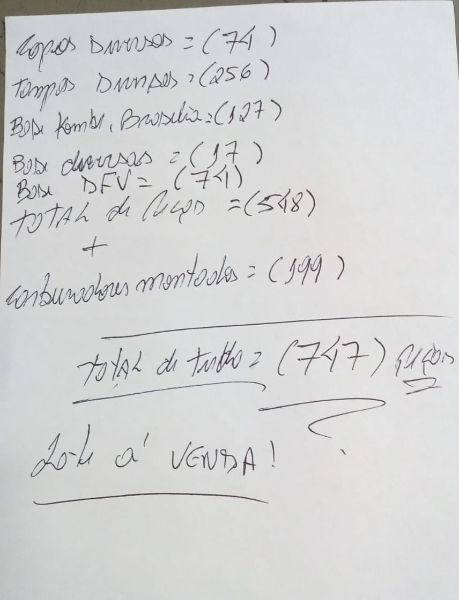 Copos Diversos = (74)
Tampas Diversas = (256)
Base Kombi, Brasilia = (127)
Base diversas = (17)
Base DFV = (74)
TOTAL de Peças = (548)
+
Carburadores montados = (199)
TOTAL de tudo = (747) peças
Lote á VENDA!